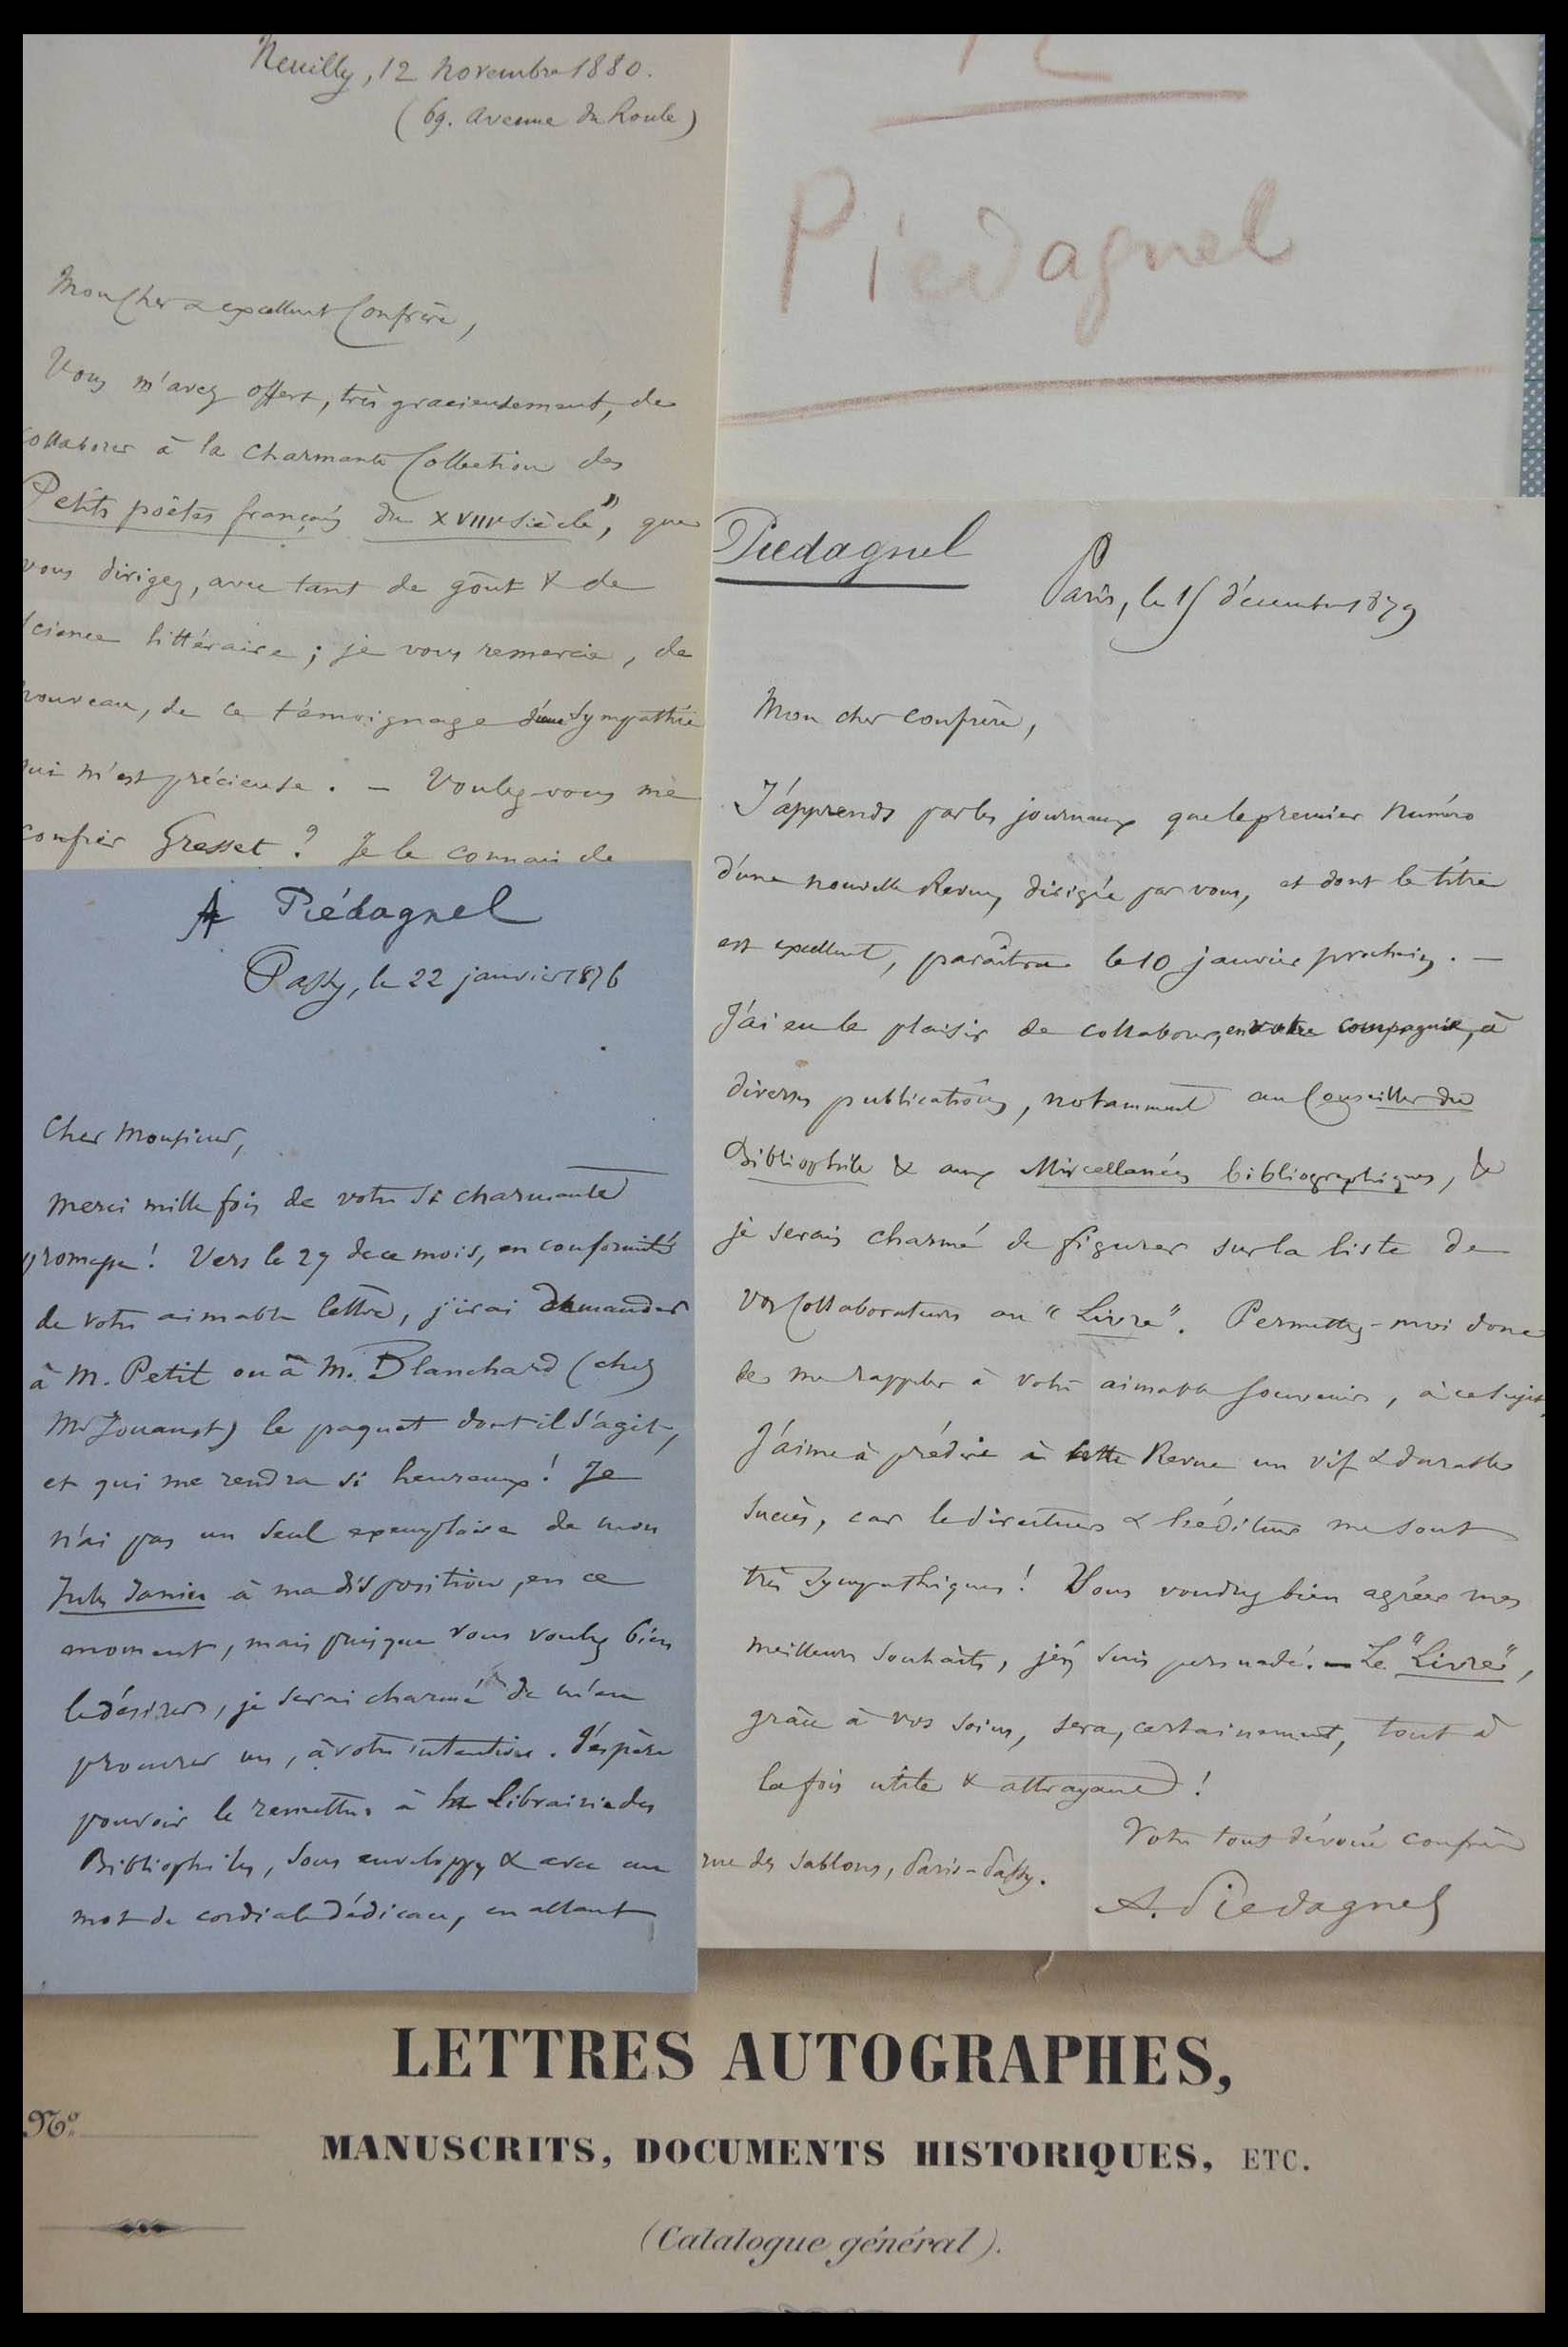 Neuilly, 12 novembre 1880.
(69. avenue du Roule)
Mon Cher & excellent Confrère,
Vous m'avez offert, très gracieusement, de
collaborer à la charmante Collection des
Petits poëtes français du XVIIIe siècle", que
vous dirigez, avec tant de goût & de
science littéraire ; je vous remercie, de
nouveau, de ce témoignage d'une sympathie
qui m'est précieuse. – Voulez-vous me
confier Gresset ? Je le connais de
Piedagnel
Piedagnel
Paris, le 15 décembre 1879
Mon cher confrère,
J'apprends par les journaux que le premier numéro
d'une nouvelle Revue, dirigée par vous, et dont le titre
est excellent, paraîtra le 10 janvier prochain. –
J'ai eu le plaisir de collaborer, en votre compagnie, à
diverses publications, notamment au Conseiller du
Bibliophile & aux Miscellanées bibliographiques, &
je serais charmé de figurer sur la liste de
vos Collaborateurs au "Livre". Permettez-moi donc
de me rappeler à votre aimable souvenir, à ce sujet.
J'aime à prédire à cette Revue un vif & durable
succès, car le directeur & l'éditeur me sont
très sympathiques ! Vous voudrez bien agréer mes
meilleurs souhaits, j'en suis persuadé. – Le "Livre",
grâce à vos soins, sera, certainement, tout à
la fois utile & attrayant !
Votre tout dévoué confrère
rue des Sablons, Paris-Passy.
A. Piedagnel
A Piédagnel
Passy, le 22 janvier 1876
Cher Monsieur,
Merci mille fois de votre si charmante
promesse ! Vers le 27 de ce mois, en conformité
de votre aimable lettre, j'irai demander
à M. Petit ou à M. Blanchard (chez
Mr Jouaust) le paquet dont il s'agit,
et qui me rendra si heureux ! Je
n'ai pas un seul exemplaire de mon
Jules Janin à ma disposition, en ce
moment, mais puisque vous voulez bien
le désirer, je serai charmé de m'en
procurer un, à votre intention. J'espère
pouvoir le remettre à la Librairie des
Bibliophiles, sous enveloppe & avec un
mot de cordiale dédicace, en allant
LETTRES AUTOGRAPHES,
No.
MANUSCRITS, DOCUMENTS HISTORIQUES, ETC.
(Catalogue général).